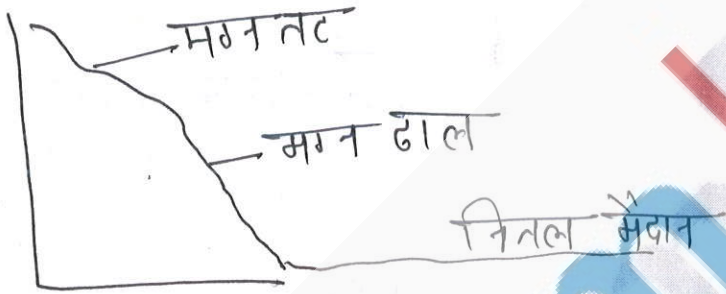 मग्न तट
मग्न ढाल
नितल मैदान